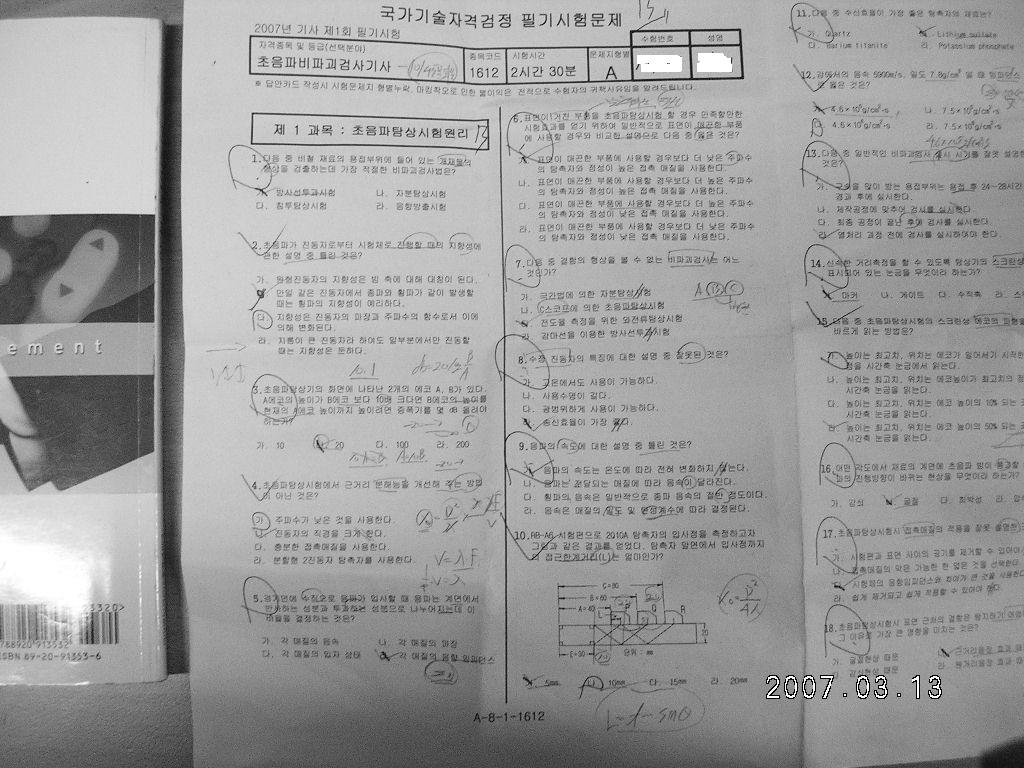 ement
788920 913532
ISBN 89-20-91353-6
국가기술자격검정 필기시험문제
2007년 기사 제1회 필기시험
자격종목 및 등급(선택분야)
초음파비파괴검사기사
종목코드
1612
시험시간
2시간 30분
문제지형별
A
수험번호
성명
※ 답안카드 작성시 시험문제지 형별누락, 마킹착오로 인한 불이익은 전적으로 수험자의 귀책사유임을 알려드립니다.
제 1 과목 : 초음파탐상시험원리
1.다음 중 비철 재료의 용접부위에 들어 있는 개재물의
형상을 검출하는데 가장 적절한 비파괴검사법은?
가. 방사선투과시험 나. 자분탐상시험
다. 침투탐상시험 라. 음향방출시험
2.초음파가 진동자로부터 시험체로 진행할 때의 지향성에
관한 설명 중 틀린 것은?
가. 원형진동자의 지향성은 빔 축에 대해 대칭이 된다.
나. 만일 같은 진동자에서 종파와 횡파가 같이 발생할
때는 횡파의 지향성이 예리하다.
다. 지향성은 진동자의 파장과 주파수의 함수로서 이에
의해 변화된다.
라. 지름이 큰 진동자라 하여도 일부분에서만 진동할
때는 지향성은 둔하다.
3.초음파탐상기의 화면에 나타난 2개의 에코 A, B가 있다.
A에코의 높이가 B에코 보다 10배 크다면 B에코의 높이를
현재의 A에코 높이까지 높이려면 증폭기를 몇 dB 올려야
하는가?
가. 10 나. 20 다. 100 라. 200
4.초음파탐상시험에서 근거리 분해능을 개선해 주는 방법
이 아닌 것은?
가. 주파수가 낮은 것을 사용한다.
나. 진동자의 직경을 크게 한다.
다. 충분한 접촉매질을 사용한다.
라. 분할형 2진동자 탐촉자를 사용한다.
V=λF
5.경계면에 수직으로 음파가 입사할 때 음파는 계면에서
반사하는 성분과 투과하는 성분으로 나누어지는데 이
비율을 결정하는 것은?
가. 각 매질의 음속 나. 각 매질의 파장
다. 각 매질의 입자 상태 라. 각 매질의 음향 임피던스
6.표면이 거친 부품을 초음파탐상시험 할 경우 만족할만한
시험효과를 얻기 위하여 일반적으로 표면이 매끈한 부품
에 사용할 경우와 비교한 설명으로 다음 중 옳은 것은?
가. 표면이 매끈한 부품에 사용할 경우보다 더 낮은 주파수
의 탐촉자와 점성이 높은 접촉 매질을 사용한다.
나. 표면이 매끈한 부품에 사용할 경우보다 더 높은 주파수
의 탐촉자와 점성이 높은 접촉 매질을 사용한다.
다. 표면이 매끈한 부품에 사용할 경우보다 더 높은 주파수
의 탐촉자와 점성이 낮은 접촉 매질을 사용한다.
라. 표면이 매끈한 부품에 사용할 경우보다 더 낮은 주파수
의 탐촉자와 점성이 낮은 접촉 매질을 사용한다.
7.다음 중 결함의 형상을 볼 수 없는 비파괴검사는 어느
것인가?
가. 극간법에 의한 자분탐상시험
나. C스코프에 의한 초음파탐상시험
다. 전도율 측정을 위한 와전류탐상시험
라. 감마선을 이용한 방사선투과시험
8.수정 진동자의 특징에 대한 설명 중 잘못된 것은?
가. 고온에서도 사용이 가능하다.
나. 사용수명이 길다.
다. 광범위하게 사용이 가능하다.
라. 송신효율이 가장 좋다.
9.음파의 속도에 대한 설명 중 틀린 것은?
가. 음파의 속도는 온도에 따라 전혀 변화하지 않는다.
나. 음파는 전달되는 매질에 따라 음속이 달라진다.
다. 횡파의 음속은 일반적으로 종파 음속의 절반 정도이다.
라. 음속은 매질의 밀도 및 탄성계수에 따라 결정된다.
10.RB-A6 시험편으로 2010A 탐촉자의 입사점을 측정하고자
그림과 같은 결과를 얻었다. 탐촉자 앞면에서 입사점까지
의 접근한계거리(L)는 얼마인가?
C=80
B=60
A=40
P Q R
20
E=30
단위 : mm
가. 5mm 나. 10mm 다. 15mm 라. 20mm
A-8-1-1612
11.다음 중 수신효율이 가장 좋은 탐촉자의 재료는?
가. Quartz 나. Lithium sulfate
다. Barium titanite 라. Potassium phosphate
12.강에서의 음속 5900m/s, 밀도 7.8g/cm³ 일 때 임피던스
로 옳은 것은?
나. 7.5×10⁶g/cm²·s
라. 7.5×10⁵g/cm²·s
13.다음 중 일반적인 비파괴검사 실시 시기를 잘못 설명한
것은?
가. 구속을 많이 받는 용접부위는 용접 후 24~28시간
경과 후에 실시한다.
나. 제작공정에 맞추어 검사를 실시한다.
다. 최종 공정이 끝난 후에 검사를 실시한다.
라. 열처리 과정 전에 검사를 실시하여야 한다.
14.신속한 거리측정을 할 수 있도록 탐상기의 스크린상
표시되어 있는 눈금을 무엇이라 하는가?
가. 마커 나. 게이트 다. 수직축 라. 스
15.다음 중 초음파탐상시험의 스크린상 에코의 파형을
바르게 읽는 방법은?
가. 높이는 최고치, 위치는 에코가 일어서기 시작한
시간축 눈금에서 읽는다.
나. 높이는 최고치, 위치는 에코높이가 최고치의 점
시간축 눈금을 읽는다.
다. 높이는 최고치, 위치는 에코 높이의 10% 되는 곳
시간축 눈금을 읽는다.
라. 높이는 최고치, 위치는 에코 높이의 50% 되는 곳
시간축 눈금을 읽는다.
16.어떤 각도에서 재료의 계면에 초음파 빔이 통과할
파의 진행방향이 바뀌는 현상을 무엇이라 하는가?
가. 감쇠 나. 굴절 다. 희박성 라.
17.초음파탐상시험시 접촉매질의 적용을 잘못 설명한
가. 시험편과 표면 사이의 공기를 제거할 수 있어야
나. 접촉매질의 막은 가능한 한 얇은 것을 선택한다.
다. 시험체의 음향임피던스와 차이가 큰 것을 사용한다.
라. 쉽게 제거되고 쉽게 적용할 수 있어야 한다.
18.초음파탐상시험시 표면 근처의 결함은 탐지하기 어렵
그 이유로 가장 큰 영향을 미치는 것은?
가. 굴절현상 때문 나. 근거리음장 효과 때
다. 감쇠현상 때문 라. 원거리음장 효과 때
2007.03.13